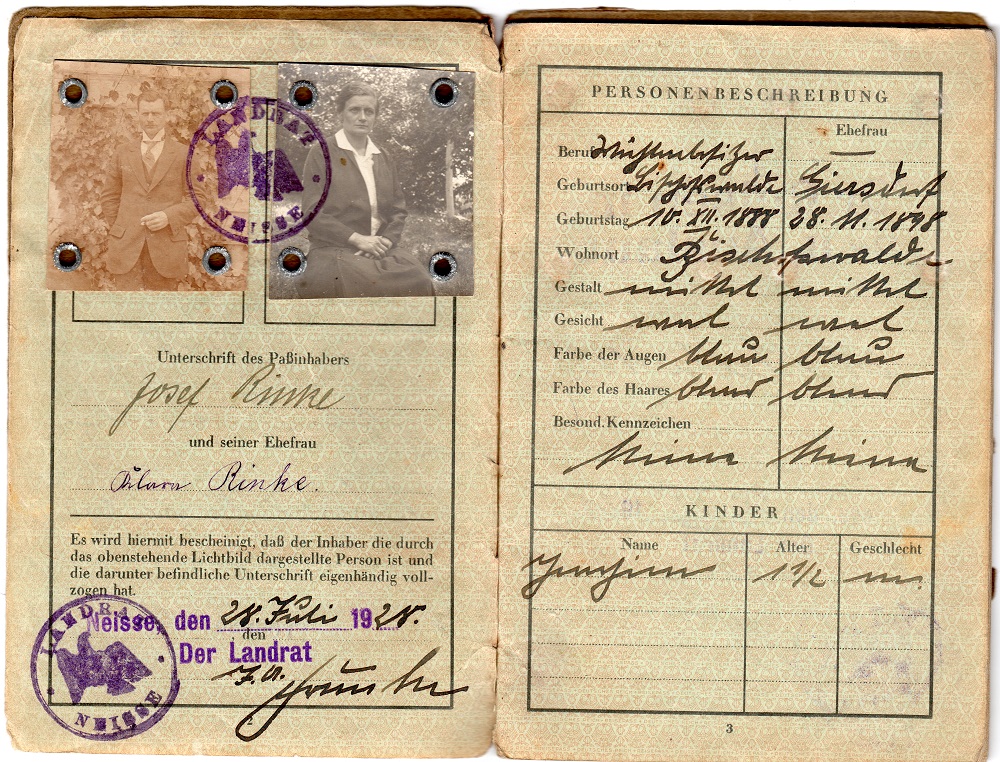 LANDRAT
NEISSE
Unterschrift des Paßinhabers
Josef Rinke
und seiner Ehefrau
Klara Rinke.
Es wird hiermit bescheinigt, daß der Inhaber die durch
das obenstehende Lichtbild dargestellte Person ist und
die darunter befindliche Unterschrift eigenhändig voll-
zogen hat.
LANDRAT
NEISSE
Neisse, den 28. Juli 1928.
den
Der Landrat
I.A.
PERSONENBESCHREIBUNG
Ehefrau
Beruf —
Geburtsort Bischofswalde Giersdorf
Geburtstag 10. XII. 1888 28. 11. 1898
Wohnort Bischofswalde
Gestalt mittel mittel
Gesicht oval oval
Farbe der Augen blau blau
Farbe des Haares blond blond
Besond. Kennzeichen
keine keine
KINDER
Name Alter Geschlecht
Joachim 1 1/2 m.
3